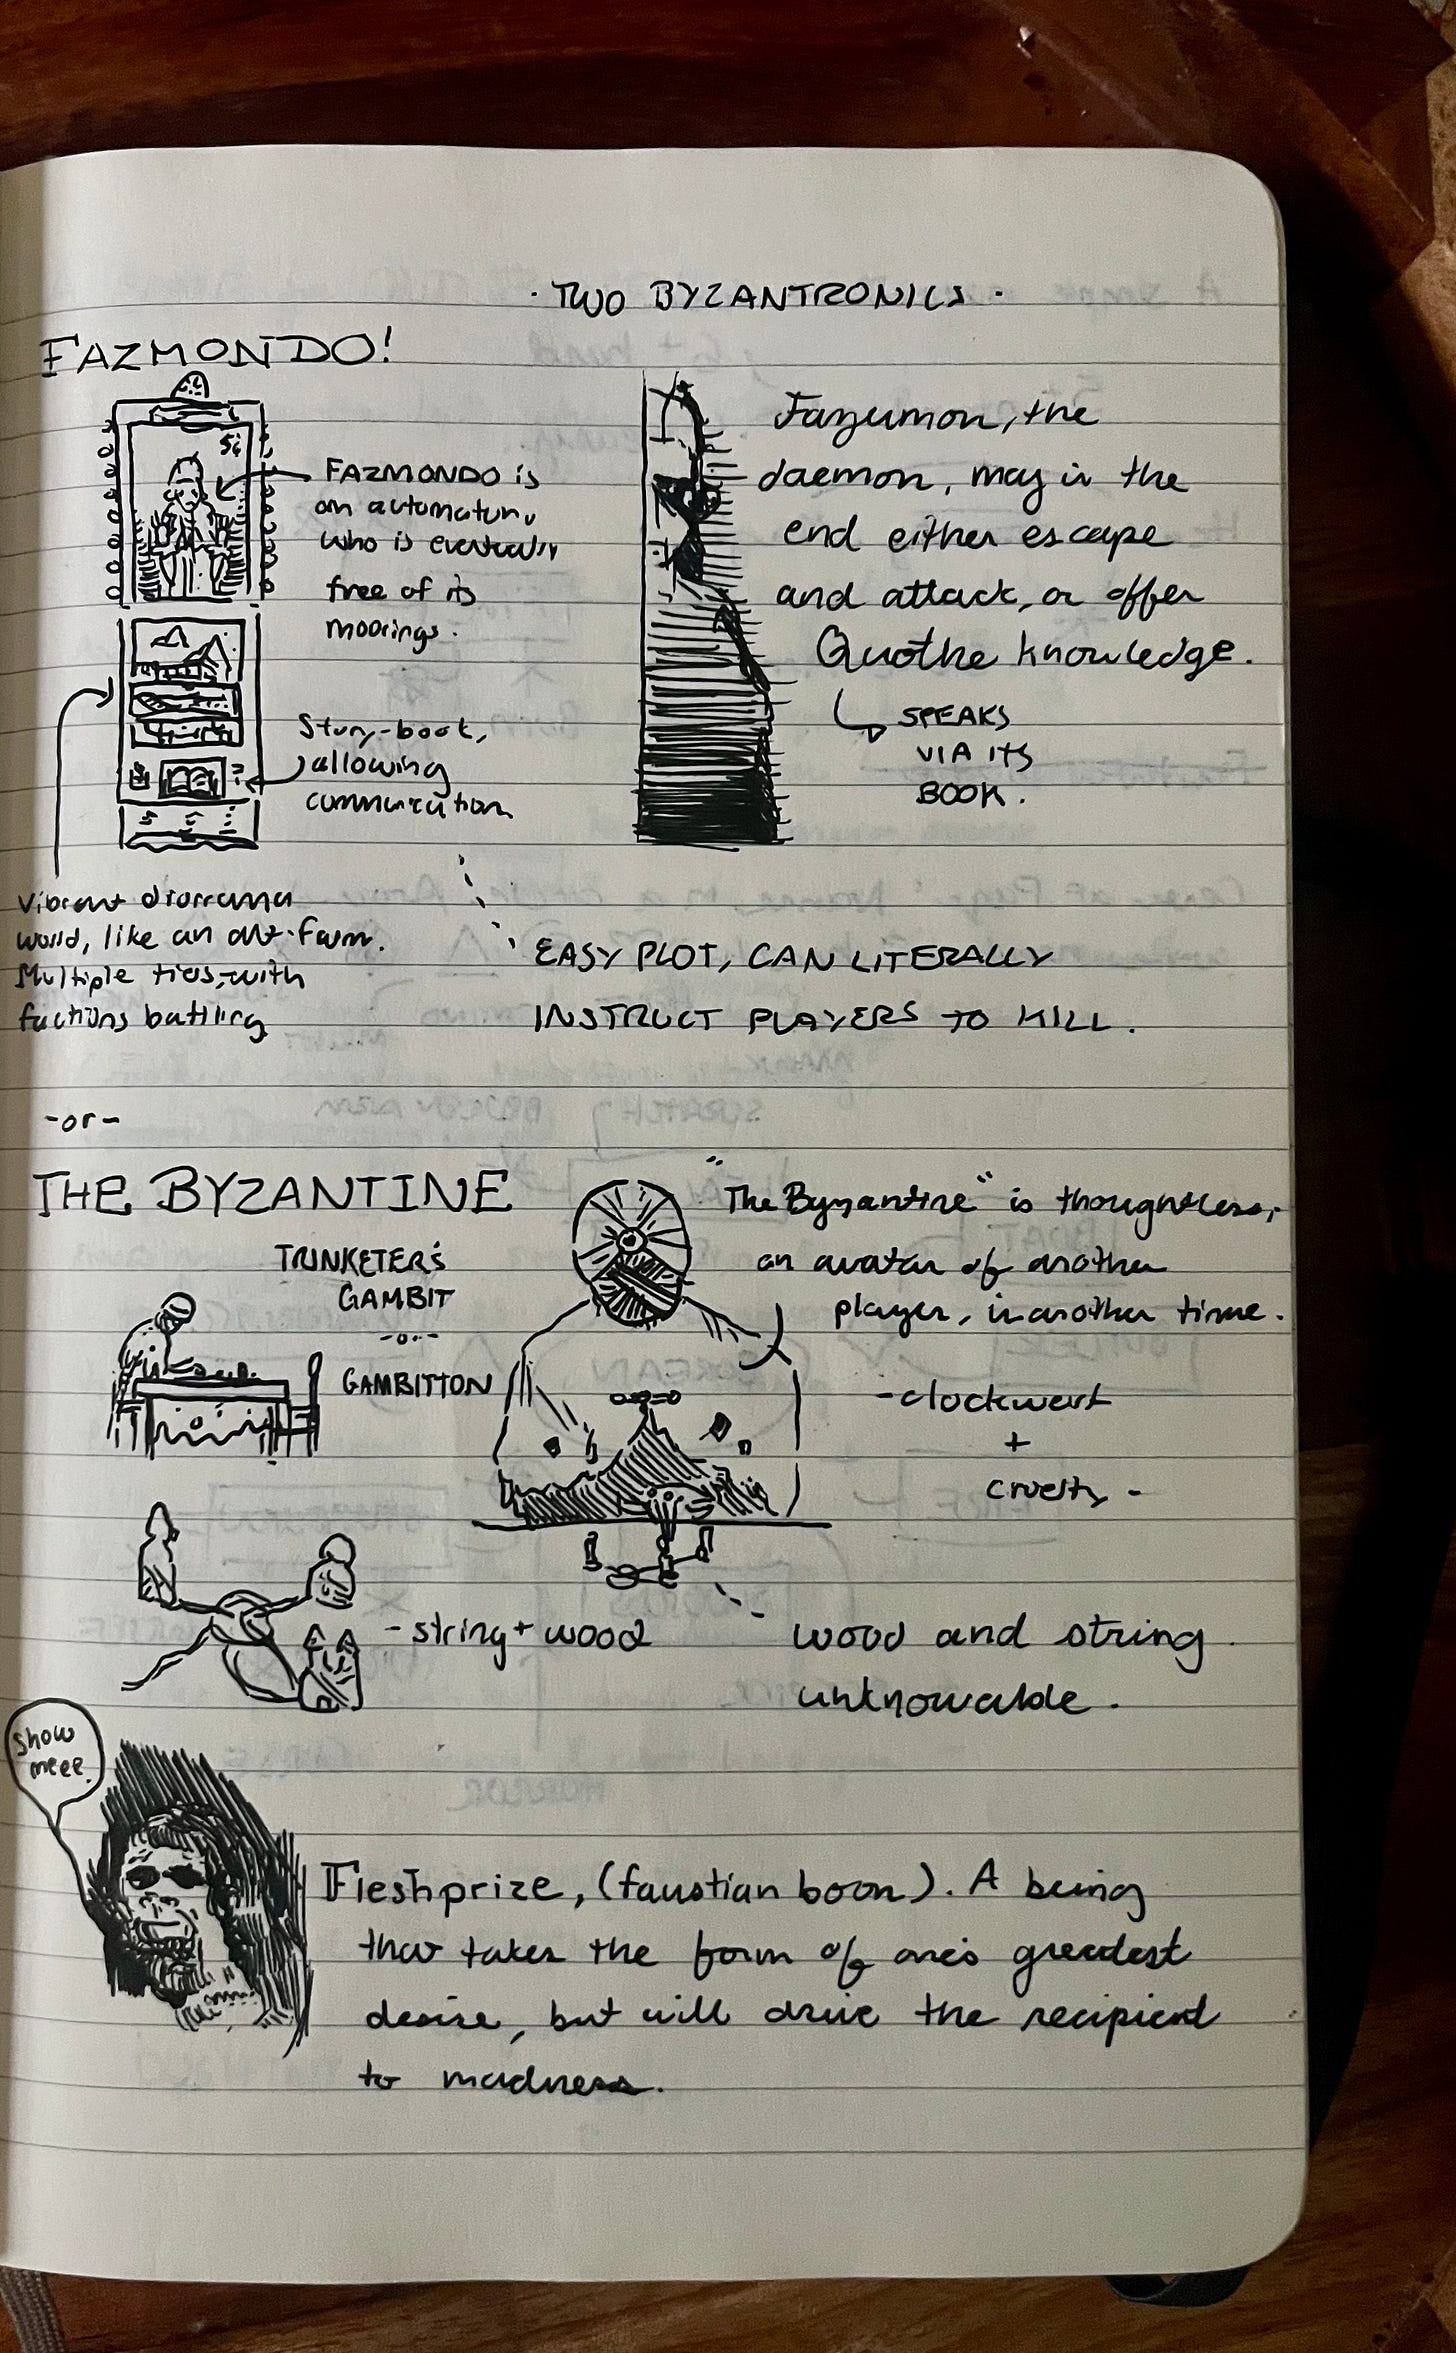 · TWO BYZANTRONICS ·
FAZMONDO!
5¢
FAZMONDO is
an automaton,
who is eventually
free of its
moorings.
Story-book,
allowing
communication
Vibrant diorama
world, like an ant-farm.
Multiple tiers, with
factions battling
Fazumon, the
daemon, may in the
end either escape
and attack, or offer
Quothe knowledge.
SPEAKS
VIA ITS
BOOK.
EASY PLOT, CAN LITERALLY
INSTRUCT PLAYERS TO KILL.
-or-
THE BYZANTINE
TRINKETER'S
GAMBIT
-or-
GAMBITTON
"The Byzantine" is thoughtless,
an avatar of another
player, in another time.
-clockwork
+
cruelty -
- string + wood
wood and string
unknowable.
Show
meee.
Fleshprize, (faustian boon). A being
that takes the form of one's greatest
desire, but will drive the recipient
to madness.